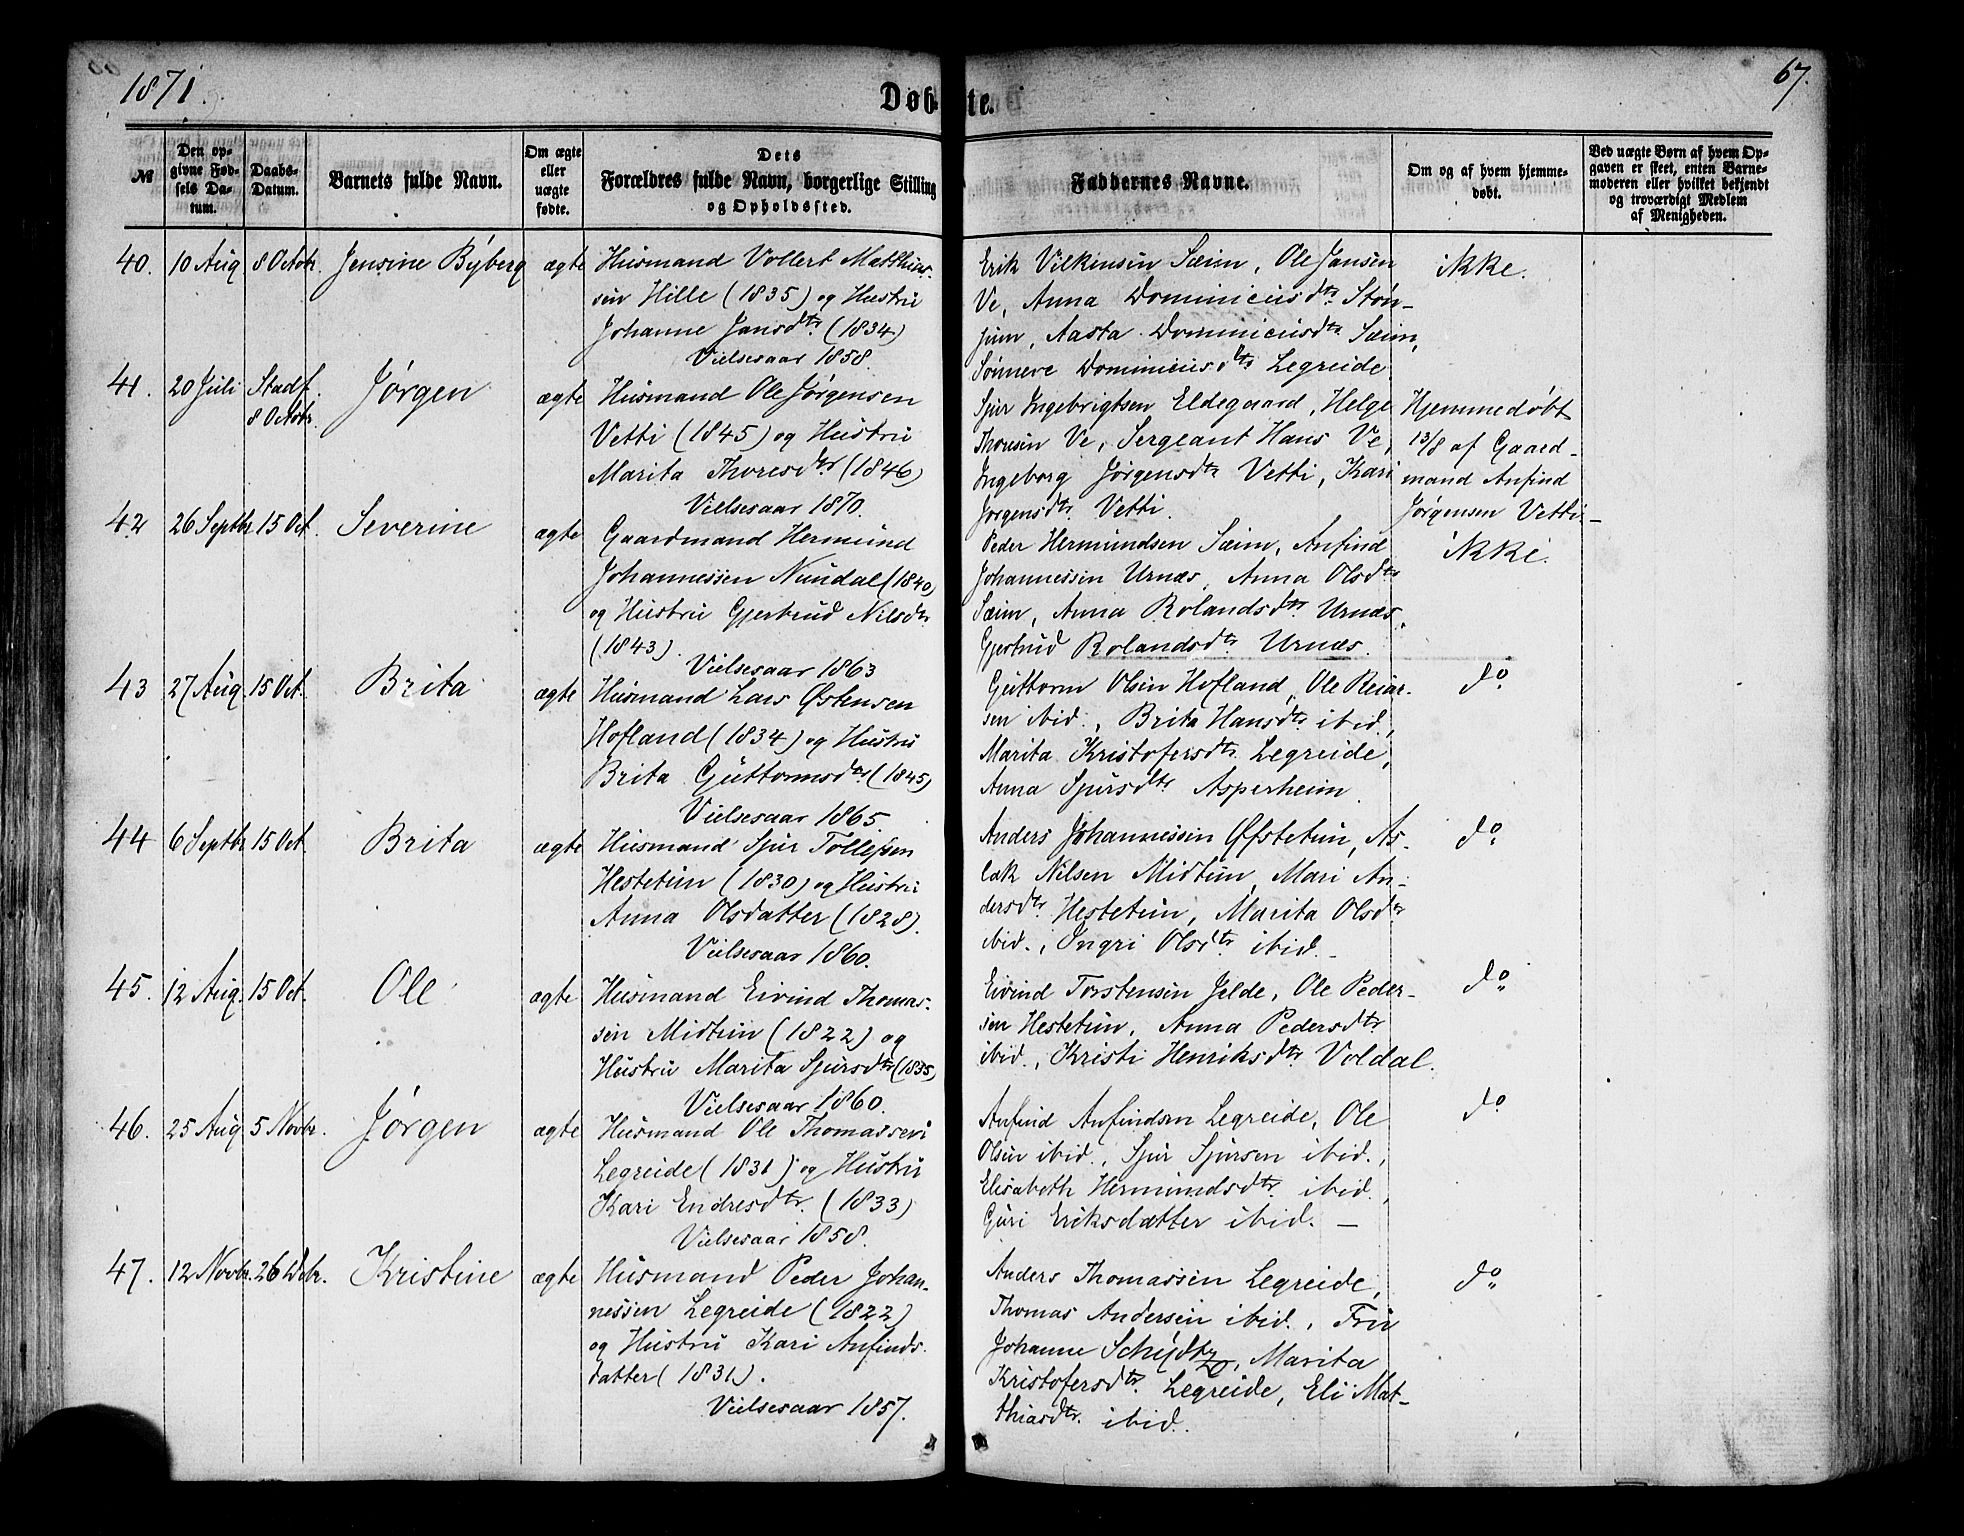 1871.
Døbte.
67.
№
Den opgivne Fødsels Datum.
Daabs-Datum.
Barnets fulde Navn.
Om ægte eller uægte fødte.
Dets Forældres fulde Navn, borgerlige Stilling og Opholdssted.
Faddernes Navne.
Om og af hvem hjemmedøbt.
Ved uægte Børn af hvem Opgaven er skeet, enten Barnemoderen eller hvilket bekjendt og troværdigt Medlem af Menigheden.
40. 10 Aug 8 Octobr. Jensine Byberg ægte
Husmand Vollert Matthias-
sen Hille (1835) og Hustru
Johanne Jansdtr. (1834)
Vielsesaar 1858.
Erik Vilkinsen Sæim, Ole Jansen
Ve, Anna Dominicusdtr. Støn-
jum, Aasta Dominicusdtr. Sæim,
Sønneve Dominicusdtr. Legreide
ikke.
41. 20 Juli Stadf. 8 Octobr. Jørgen ægte
Husmand Ole Jørgensen
Vetti (1845) og Hustru
Marita Thoresdtr (1846)
Vielsesaar 1870.
Sjur Ingebrigtsen Eldegaard, Helge
Thomsen Ve, Sergeant Hans Ve,
Ingeborg Jørgensdtr. Vetti, Kari
Jørgensdtr. Vetti.
Hjemmedøbt
13/8 af Gaard-
mand Anfind
Jørgensen Vetti-
42 26 Septbr 15 Oct. Severine ægte
Gaardmand Hermund
Johannessen Nundal (1840)
og Hustru Gjertrud Nilsdtr.
(1843).
Vielsesaar 1863
Peder Hermundsen Sæim, Anfind
Johannessen Urnæs, Anna Olsdtr
Sæim, Anna Rolandsdtr. Urnæs,
Gjertrud Rolandsdtr. Urnæs.
ikke.
43 27 Aug. 15 Oct. Brita ægte
Husmand Lars Østensen
Hofland (1834) og Hustru
Brita Guttormsdtr. (1845)
Vielsesaar 1865.
Guttorm Olsen Hofland, Ole Reiar-
sen ibid., Brita Hansdtr. ibid.,
Marita Kristofersdtr. Legreide,
Anna Sjursdtr. Asperheim.
do.
44 6 Septbr 15 Oct. Brita ægte
Husmand Sjur Tollefsen
Hestetun (1830) og Hustru
Anna Olsdatter (1828).
Vielsesaar 1860.
Anders Johannessen Øfstetun, As-
lak Nilsen Midtun, Mari An-
dersdtr. Hestetun, Marita Olsdtr
ibid., Ingri Olsdtr. ibid.-
do.
45. 12 Aug. 15 Oct. Ole ægte
Husmand Eivind Thomas-
sen Midtun (1822) og
Hustru Marita Sjursdtr (1835)
Vielsesaar 1860.
Eivind Torstensen Jelde, Ole Peder-
sen Hestetun, Anna Pedersdtr
ibid., Kristi Henriksdtr. Voldal.
do.
46. 25 Aug 5 Novbr. Jørgen ægte
Husmand Ole Thomassen
Legreide (1831) og Hustru
Kari Endresdtr. (1833)
Vielsesaar 1858.
Anfind Anfindsen Legreide, Ole
Olsen ibid., Sjur Sjursen ibid.,
Elisabeth Hermundsdtr. ibid.,
Guri Eriksdatter ibid. -
do
47. 12 Novbr. 26 Debr. Kristine ægte
Husmand Peder Johan-
nessen Legreide (1822)
og Hustru Kari Anfinds-
datter (1831).
Vielsesaar 1857.
Anders Thomassen Legreide,
Thomas Andersen ibid., Fru
Johanne Schydtz, Marita
Kristofersdtr. Legreide, Eli Mat-
thiasdtr. ibid.
do.